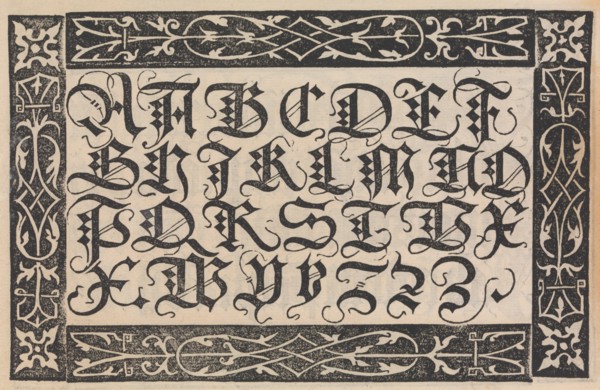 A A B C D E F
G H I K L M N O
P Q R S T V X
X. W Y Y Z Z Z